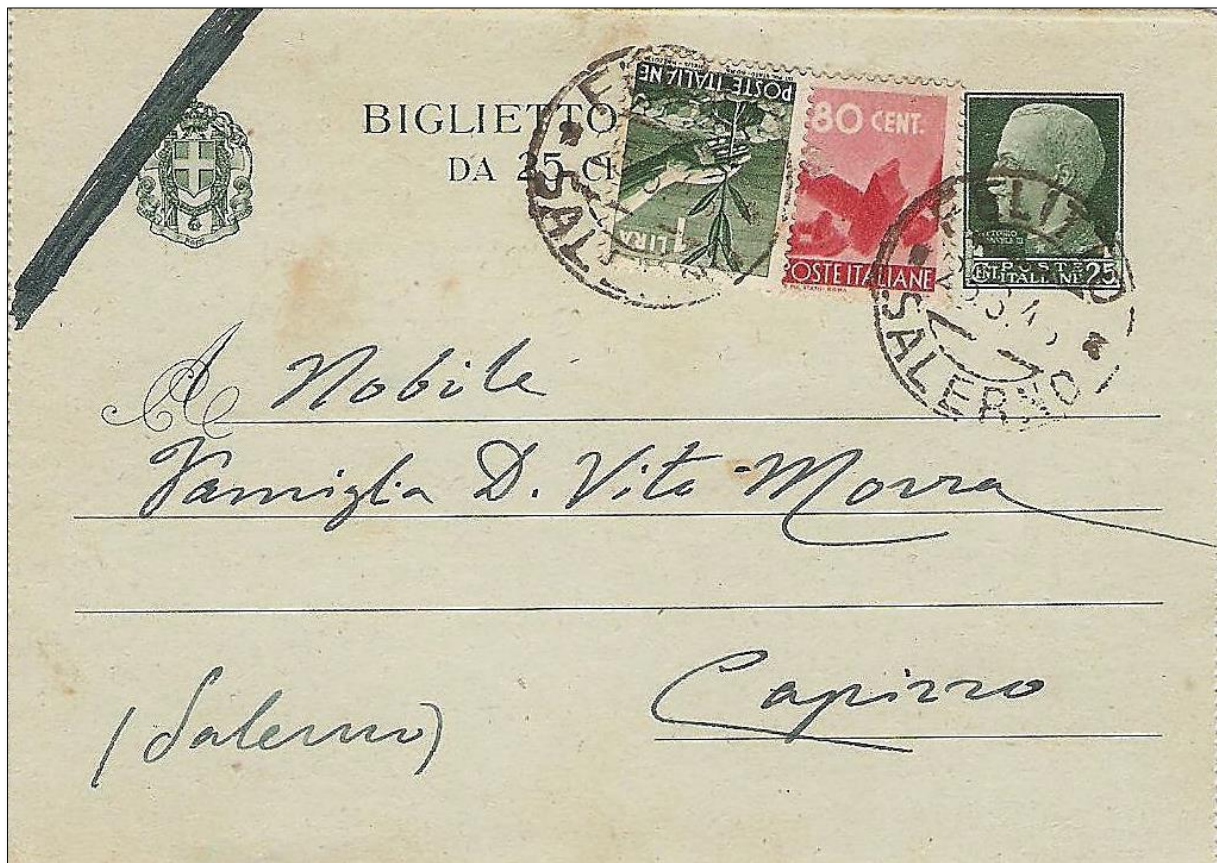 BIGLIETTO
DA 25
POSTE ITALIANE
1 LIRA
80 CENT.
POSTE ITALIANE
POSTE
CENT. ITALIANE 25
SALERNO
A Nobile
Famiglia D. Vito Morra
Capizzo
(Salerno)